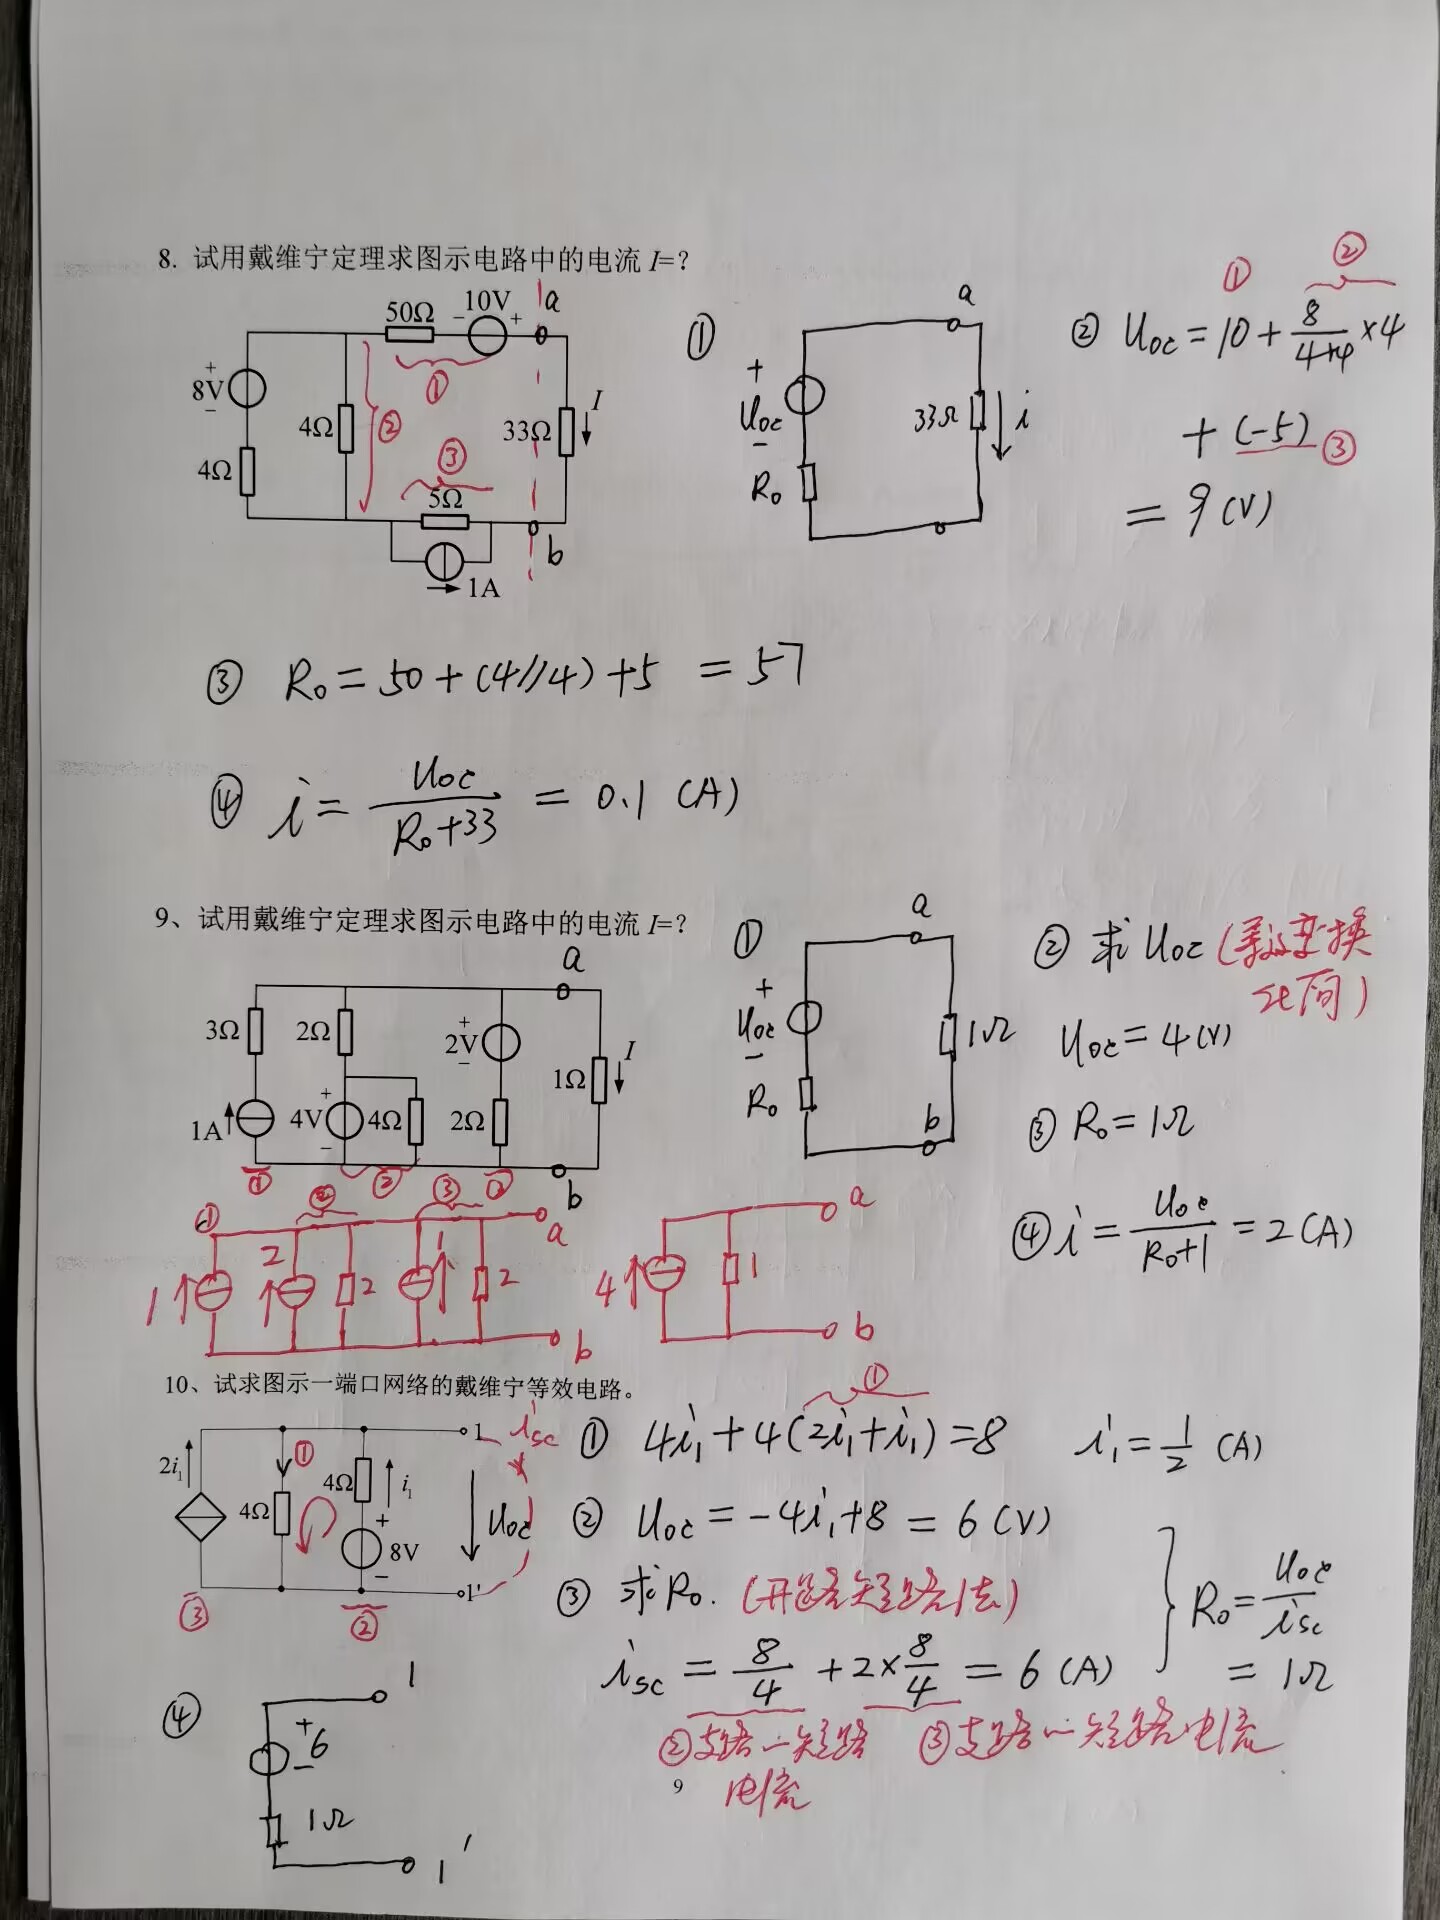 8. 试用戴维宁定理求图示电路中的电流 I=?
50Ω
10V
− +
a
①
+
8V
−
4Ω
4Ω
②
③
5Ω
33Ω
I
1A
b
①
a
+
Uoc
−
R₀
33Ω
i
① ②
② Uoc = 10 + 8/(4+4) ×4
+ (-5) ③
= 9 (V)
③ R₀ = 50 + (4//4) + 5 = 57
④ i = Uoc/(R₀+33) = 0.1 (A)
9、试用戴维宁定理求图示电路中的电流 I=?
a
3Ω
2Ω
+
2V
−
1Ω
I
1A
+
4V
−
4Ω
2Ω
b
① ② ③
①
a
+
Uoc
−
R₀
1Ω
b
② 求 Uoc (等效变换
化简)
Uoc = 4 (V)
③ R₀ = 1Ω
④ i = Uoc/(R₀+1) = 2 (A)
① ② ③
a
1 2 2 1 2
b
a
4 1
b
10、试求图示一端口网络的戴维宁等效电路。
2i₁
①
4Ω
4Ω
i₁
+
8V
−
1
isc
Uoc
1'
③ ②
①
① 4i₁ + 4(2i₁+i₁) = 8 i₁ = 1/2 (A)
② Uoc = -4i₁+8 = 6 (V)
③ 求R₀. (开路短路法)
isc = 8/4 + 2×8/4 = 6 (A)
R₀ = Uoc/isc
= 1Ω
②支路一短路
电流
③支路一短路电流
④
1
+
6
−
1Ω
1'
9